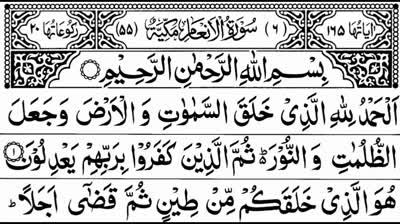 اٰيَاتُهَا ١٦٥ (٦) سُوْرَةُ الْاَنْعَامِ مَكِّيَّةٌ (٥٥) رُكُوْعَاتُهَا ٢٠
بِسْمِ اللّٰهِ الرَّحْمٰنِ الرَّحِيْمِ
اَلْحَمْدُ لِلّٰهِ الَّذِىْ خَلَقَ السَّمٰوٰتِ وَ الْاَرْضَ وَ جَعَلَ
الظُّلُمٰتِ وَ النُّوْرَ ؕ ثُمَّ الَّذِيْنَ كَفَرُوْا بِرَبِّهِمْ يَعْدِلُوْنَ ١
هُوَ الَّذِىْ خَلَقَكُمْ مِّنْ طِيْنٍ ثُمَّ قَضٰۤى اَجَلًا ؕ